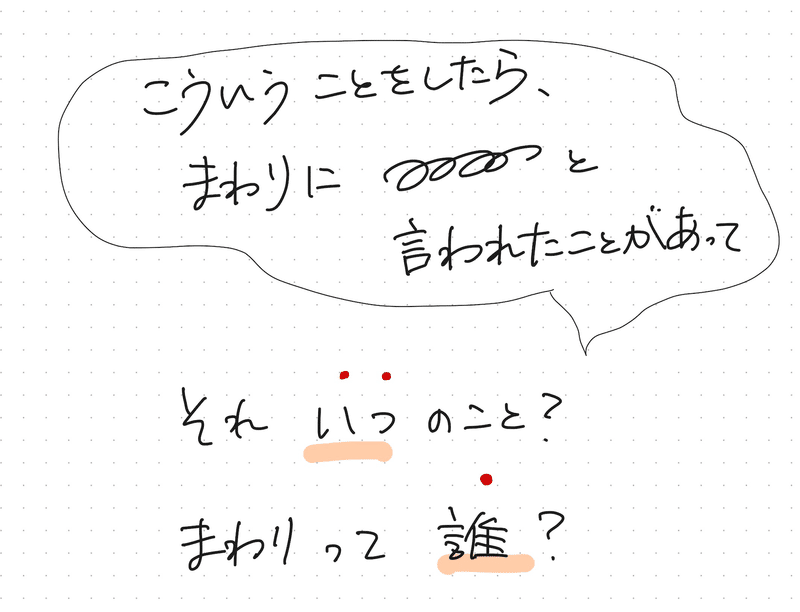 こういうことをしたら、
まわりに と
言われたことがあって
それ いつ のこと?
まわりって 誰?